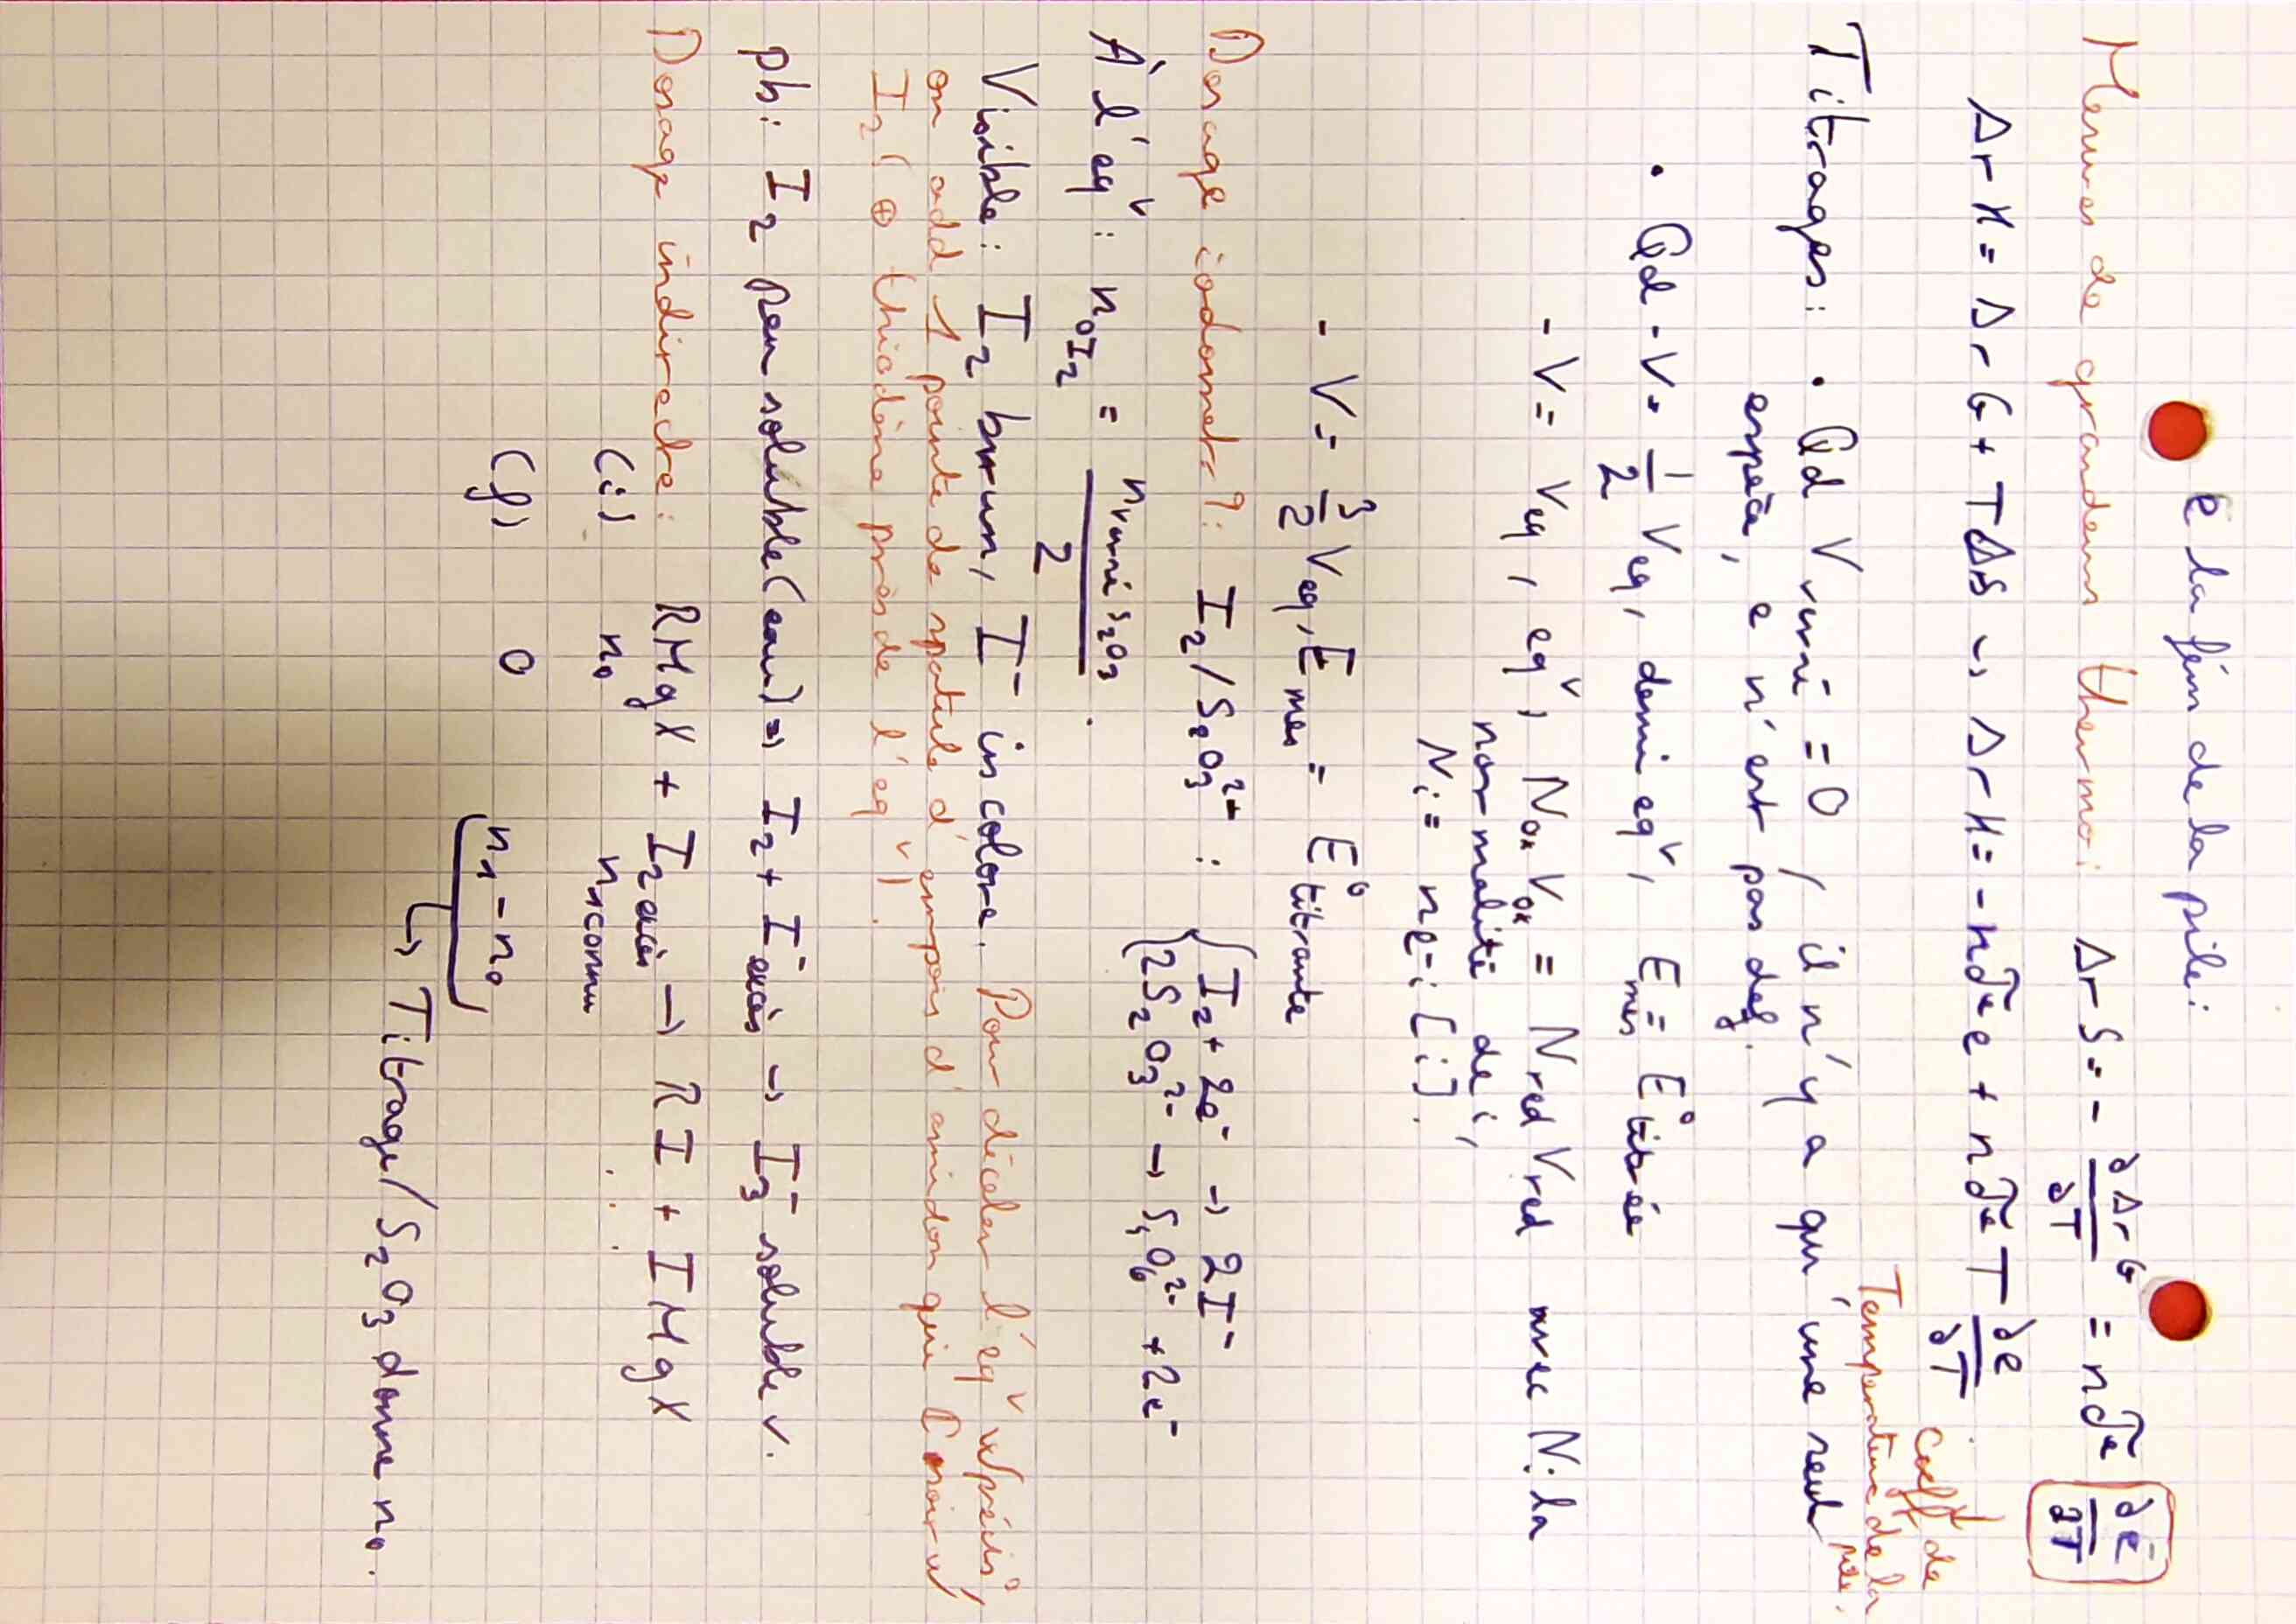 e la fém de la pile:
Mesures de grandeurs thermo: ΔrS = - ∂ΔrG/∂T = nF ∂e/∂T
ΔrH = ΔrG + TΔrS ↝ ΔrH = -nFe + nFT ∂e/∂T
Coefft de
Température de la pile.
Titrages: • Qd V versé = 0, il n'y a qu'une seule
espèce, e n'est pas def.
• Qd - V = 1/2 Veq, demi eqv, Emes = E° titrée
- V = Veq, eqv, Nox Vox = Nred Vred avec Ni la
normalité de i,
Ni = ne-i [i].
- V = 3/2 Veq, Emes = E° titrante
Dosage iodomet=?: I2/S2O3 2- : { I2 + 2e- → 2I-
{ 2S2O3 2- → S4O6 2- + 2e-
À l'eqv: n0I2 = nversé S2O3 / 2.
Visible: I2 brun, I- incolore. Pour déceler l'eqv précis,
on add 1 pointe de spatule d'empois d'amidon qui
I2 (⊕ thiodène près de l'eqv).
pb: I2 peu soluble (eau) ⇒ I2 + I- excès → I3- soluble v.
Dosage indirecte: RMgX + I2 excès → RI + IMgX
(i) n0 n1 connu
(f) 0 n1 - n0
↳ Titrage/S2O3 donne n0.